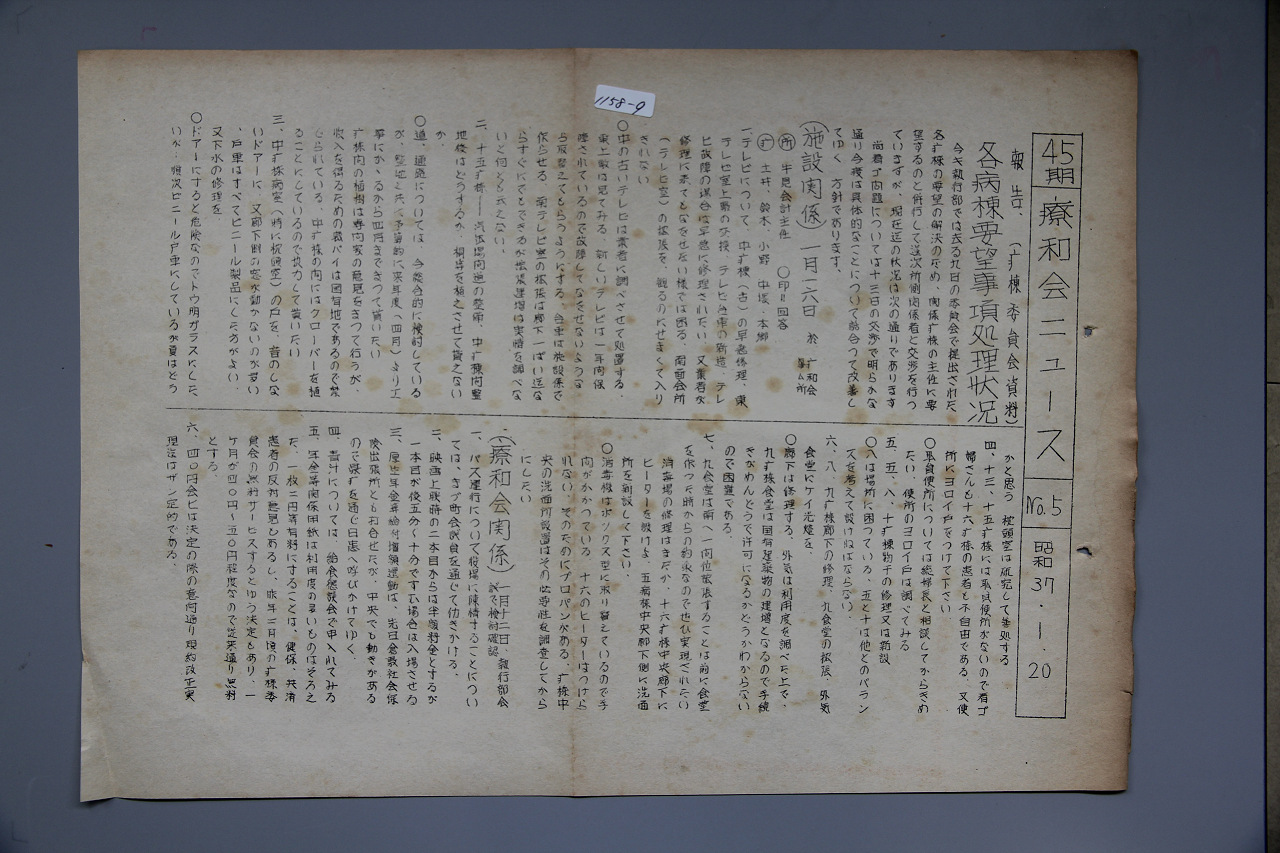 1158-9
45期 療和会ニュース No.5 昭和37.1.20
報告、(疒棟委員会資料)
各病棟要望事項処理状況
今き執行部では去る九日の委員会で提出された
各疒棟の要望の解決のため、関係疒棟の主任に要
望するのと併行して逐次所側関係者と交渉を行つ
ていますが、現在迄の状況は次の通りであります
尚看ゴ問題については十三日の交渉で明らかな
通り今後は具体的なことについて話合つて改善し
てゆく方針であります、
(施設関係)一月一六日 於 疒和会事ム所
所 牛見会計主任 〇印=回答
疒 土井、鈴木、小野、中塚・本郷
一、テレビについて、中疒棟(古)の早急修理、東
テレビ室上ノ
ビ故障の場合は早急に修理されたい、又業者が
修理に来てもなをせない様では困る、南面会所
(テレビ室)の拡張を、観るのにせまくて入り
きれない
〇中の古いテレビは業者に調べさせて処置する、
東上ノ 新しいテレビは一年間保
障されているので故障してなをせないような
ら取替えてもらうようにする、台車は施設係で
作らせる、南テレビ室の拡張は廊下一ぱい迄な
らすぐにでもできるが拡張建増は実情を調べな
いと何とも云えない、
二、十五疒棟――汽缶場間道の整備、中疒棟間整
地後はどうするか、樹草を植えさせて貰えない
か、
〇道、通路については、今総合的に検討している
が、整地と共に予算的に来年度(四月)より工
事にかゝるから四月までまつて貰いたい
疒棟内の植樹は専門家の意見をまつて行うが、
収入を得るための栽バイは国有地であるので禁
じられている、中疒棟の間にはクローバーを植
ることにしているので協力して貰いたい
三、中疒棟病室(特に祝頭室)の戸を、音のしな
いドアーに、又廊下側の窓が動かないのが多い
、戸車はすべてビニール製品にした方がよい、
又下水の修理を、
〇ドアーにすると危険なのでトウ明ガラスにした
いが、順次ビニール戸車にしているが夏はどう
かと思う 枕頭室は研究して善処する
四、十三、十五疒棟には職員便所がないので看ゴ
婦さんも十六疒棟の患者も不自由である、又便
所にヨロイ戸をつけて下さい
〇職員便所については総婦長と相談してからきめ
たい、便所のヨロイ戸は調べてみる
五、五、八、十疒棟物干の修理又は新設
〇八は場所に困つている、五と十は他とのバラン
スを考えて設けねばならない、
六、八、九疒棟廊下の修理、九食堂の拡張、外気
食堂にケイ光燈を、
〇廊下は修理する、外気は利用度を調べた上で、
九疒棟食堂は国有建築物の建増となるので手続
きがめんどうで許可になるかどうかわからない
ので困難である、
七、九食堂は南へ一間位拡張することは前に食堂
を作つた時からの約束なのでぜひ実現されたい
消毒場の修理はまだか、十六疒棟中央廊下に
ヒーターを設けよ、五病棟中央廊下側に洗面
所を新設して下さい
〇消毒機はボックス型に取り替えているので手
間がかかつている、十六のヒーターはつけら
れない、そのためにプロパンがある、疒棟中
央の洗面所設置はその必要性を調査してから
にしたい
(療和会関係)一月十二日・執行部会議で検討確認
一、バス運行について役場に陳情することについ
ては、まづ町会議員を通じて働きかける、
二、映画上映時の二本目からは半額料金とするが
一本目が後五分〜十分ですむ場合は入場させる
三、厚生年金年給付増額運動は、先日倉敷社会保
険出張所とも打合せたが、中央でも動きがある
ので県疒を通じ日患へ呼びかけてゆく、
四、青汁については、給食懇談会で申入れてみる
五、年金等関係用紙は利用度の多いものはそろえ
た、一枚二円等有料にすることは、健保、共済
患者の反対意見もあるし、昨年二月頃の疒棟委
員会の無料サービスするとゆう決定もあり、一
ケ月が四〇円〜五〇円程度なので従来通り無料
とする、
六、四〇円会ヒは決定の際の意向通り規約改正実
現迄はザン定的である、